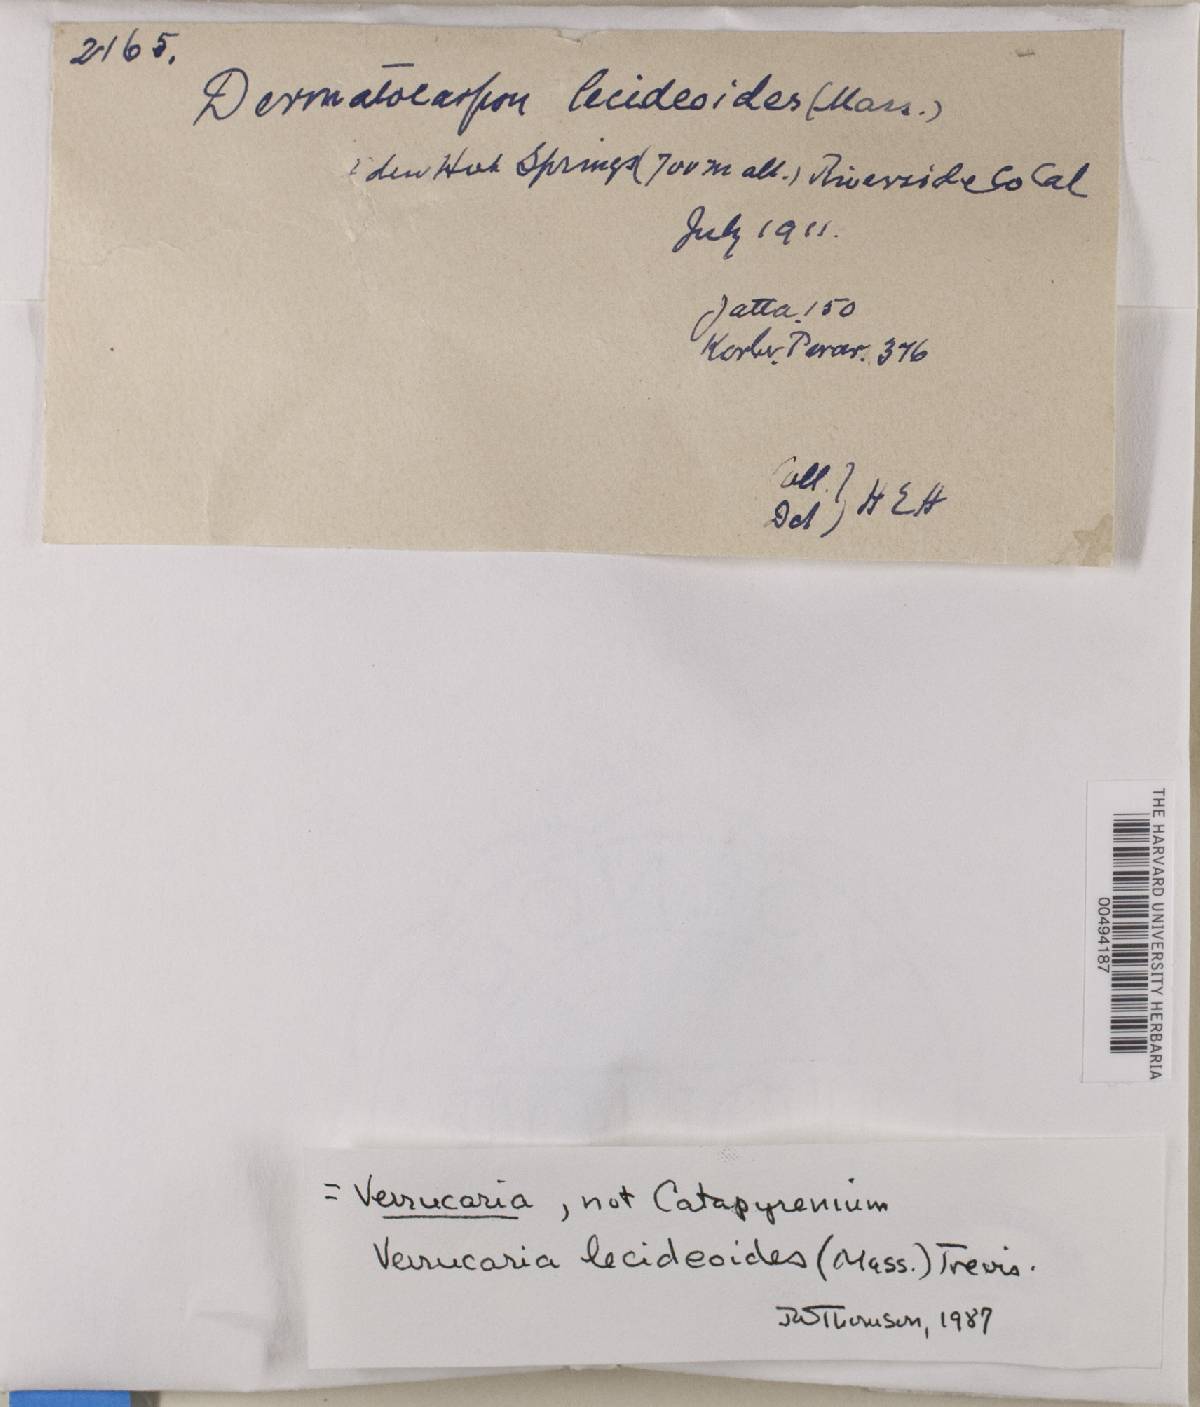 2165.
Dermatocarpon lecideoides (Mass.)
den Hot Springs (700 m alt.) Riverside Co Cal
July 1911.
Jatta. 150
Korber. Parar. 376
Coll. }
Det } H E H
THE HARVARD UNIVERSITY HERBARIA
00494187
= Verrucaria, not Catapyrenium
Verrucaria lecideoides (Mass.) Trevis.
JWThomson, 1987